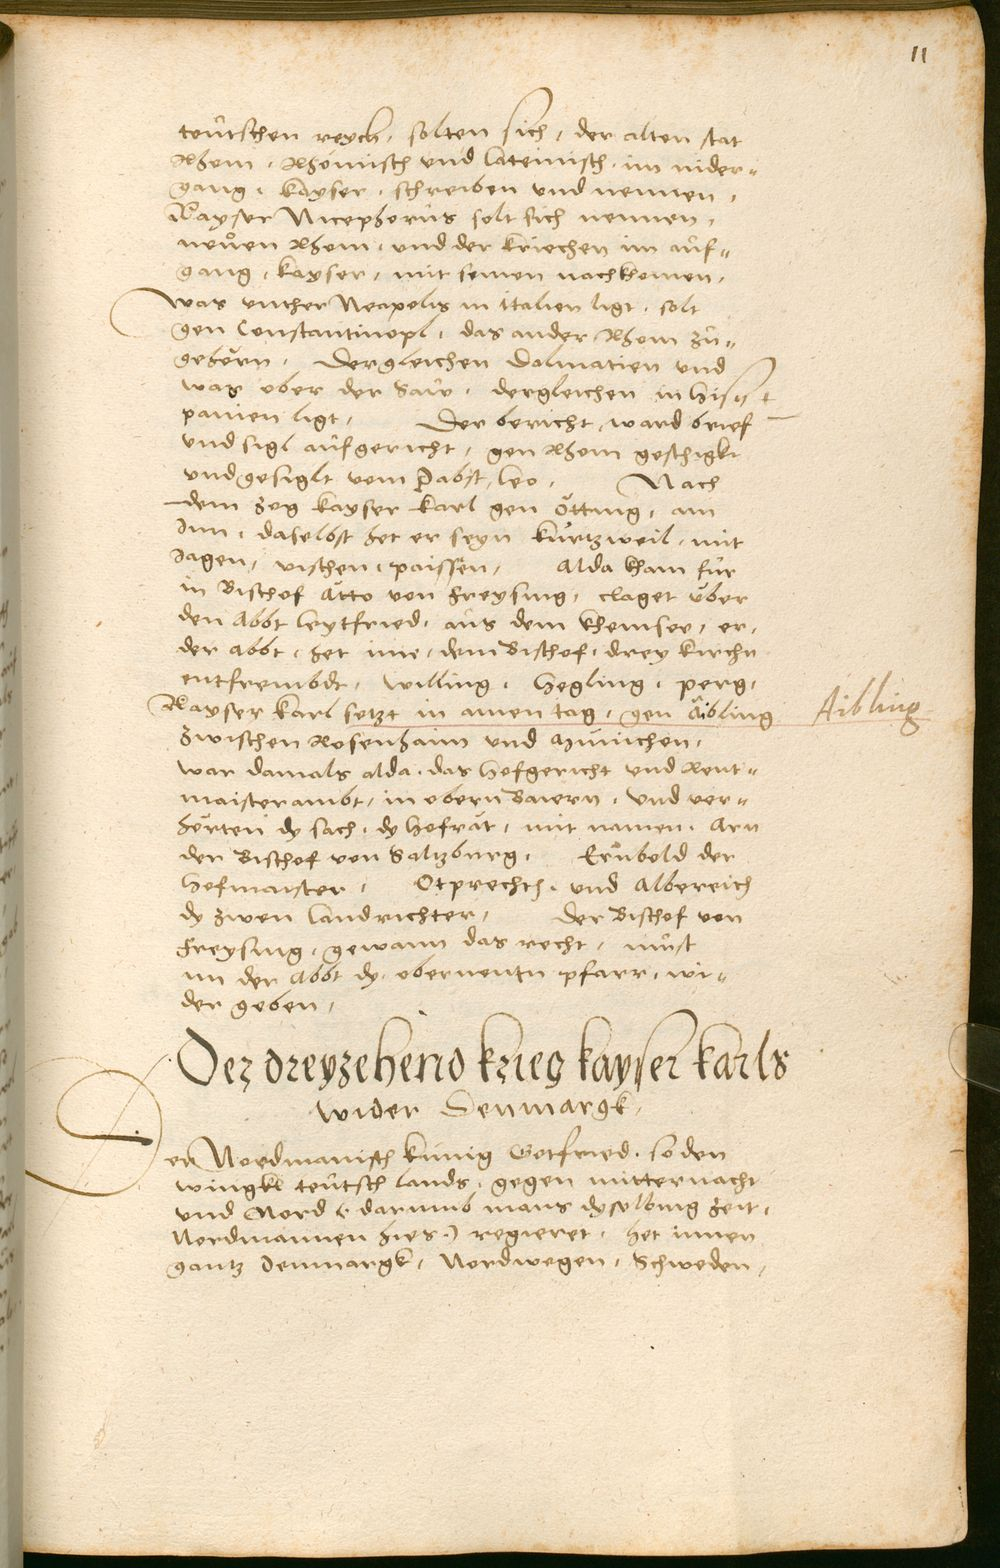 11
teutschen reych, solten sich, der alten stat
Rhom, Rhömisch und lateinisch, im nider-
gang, kayser, schreiben und nennen,
Kayser Nicephorus solt sich nennen,
neuen Rhom, und der kriechen im auf-
gang, kayser, mit seinen nachkhomen,
was unther Neapolis in Italien ligt, solt
gen Constantinopl, das ander Rhom zu-
gehörn, Dergleichen Dalmatien und
was ober der Saw, dergleichen in His-
panien ligt, Der bericht, ward brief
und sigl aufgericht, gen Rhom geschigkt
und gesiglt vom Pabst, leo, Nach
dem zog kayser karl gen Ötting, am
Inn, daselbst het er seyn kurtzweil, mit
Jagen, vischen, paissen, Alda kham für
in Bischof Átto von Freysing, claget über
den Abbt leytfried, aus dem khemsee, er,
der abbt, het ime, dem Bischof, drey kirchn
entfrembdt, Willing, Hegling, perg,
Kayser karl setzt in ainen tag, gen Aibling
Aibling
zwischen Rosenhaim und München,
war damals alda, das hofgericht und Rent-
maisterambt, in obern Baiern, und ver-
hörten dy sach, dy hofrät, mit namen, Arn
der Bischof von Saltzburg, Ernbold der
Hofmaister, Otprechth, und Albereich
dy zwen landrichter, Der Bischof von
Freysing, gewann das recht, must
im der Abbt dy obernentn pfarr, wi-
der geben,
Der dreyzehend krieg kayser karls
wider Denmargk,
Der Nordmanisch künig Gotfried, so den
wingkl teutsch lands, gegen mitternacht
und Nord (darumb mans dyselbing zeit,
Nordmannen hies) regieret, het innen
gantz Denmargk, Nordwegen, Schweden,